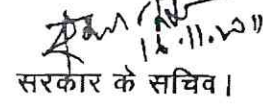 16.11.2011
सरकार के सचिव।